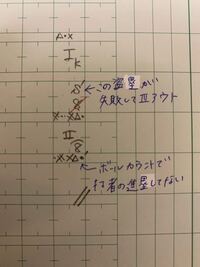 A・X
I K
S' ←この盗塁が
失敗してⅢアウト
8
X・・XA・
Ⅱ
8
・X・XA・'
←ボールカウントで
打者の進塁してない